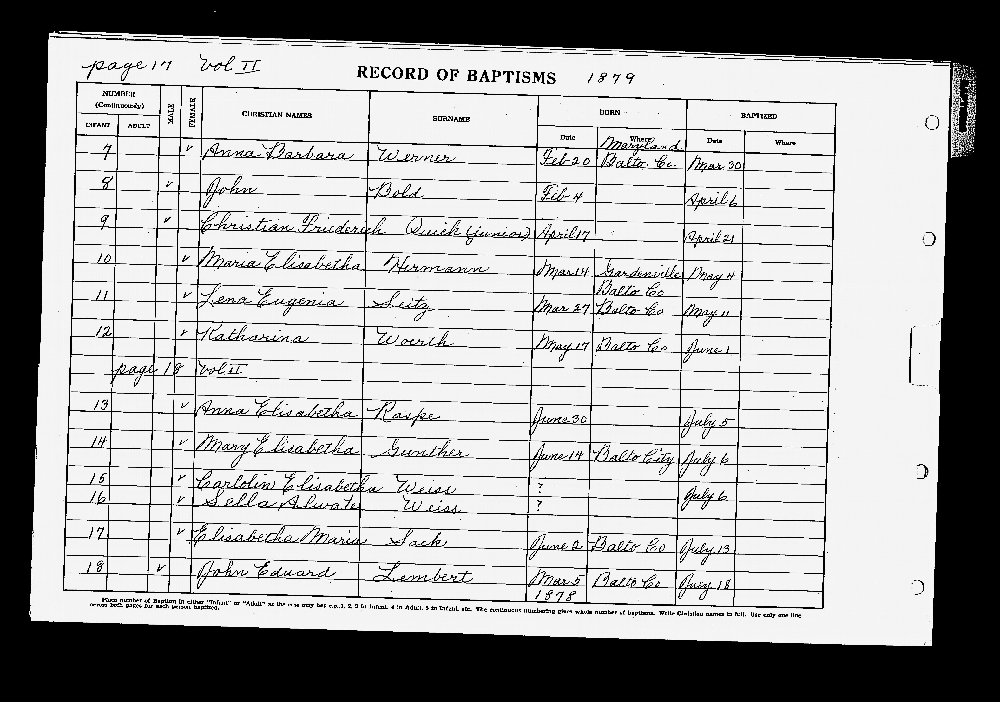 page 17 Vol II RECORD OF BAPTISMS 1879
NUMBER (Continuously) MALE FEMALE CHRISTIAN NAMES SURNAME BORN BAPTIZED
INFANT ADULT Date Where Date Where
Maryland
7 v Anna Barbara Werner Feb 20 Balto. Co. Mar 30
8 v John Bold Feb 4 April 6
9 v Christian Friederich Quick (junior) April 17 April 21
10 v Maria Elisabetha Hermann Mar 14 Gardenville May 4
Balto Co
11 v Lena Eugenia Seitz Mar 27 Balto Co May 11
12 v Katharina Woerth May 17 Balto Co June 1
page 18 Vol II
13 v Anna Elisabetha Raspe June 30 July 5
14 v Mary Elisabetha Gunther June 14 Balto City July 6
15 v Carlolin Elisabetha Weiss ? July 6
16 v Sella Alwater Weiss ?
17 v Elisabetha Maria Sack June 2 Balto Co July 13
18 v John Eduard Lembert Mar 5 Balto Co July 18
1878
Place number of Baptism in either "Infant" or "Adult" as the case may be: e.g., 1, 2, 3 in Infant, 4 in Adult, 5 in Infant, etc. The continuous numbering gives whole number of baptisms. Write Christian names in full. Use only one line
across both pages for each person baptized.